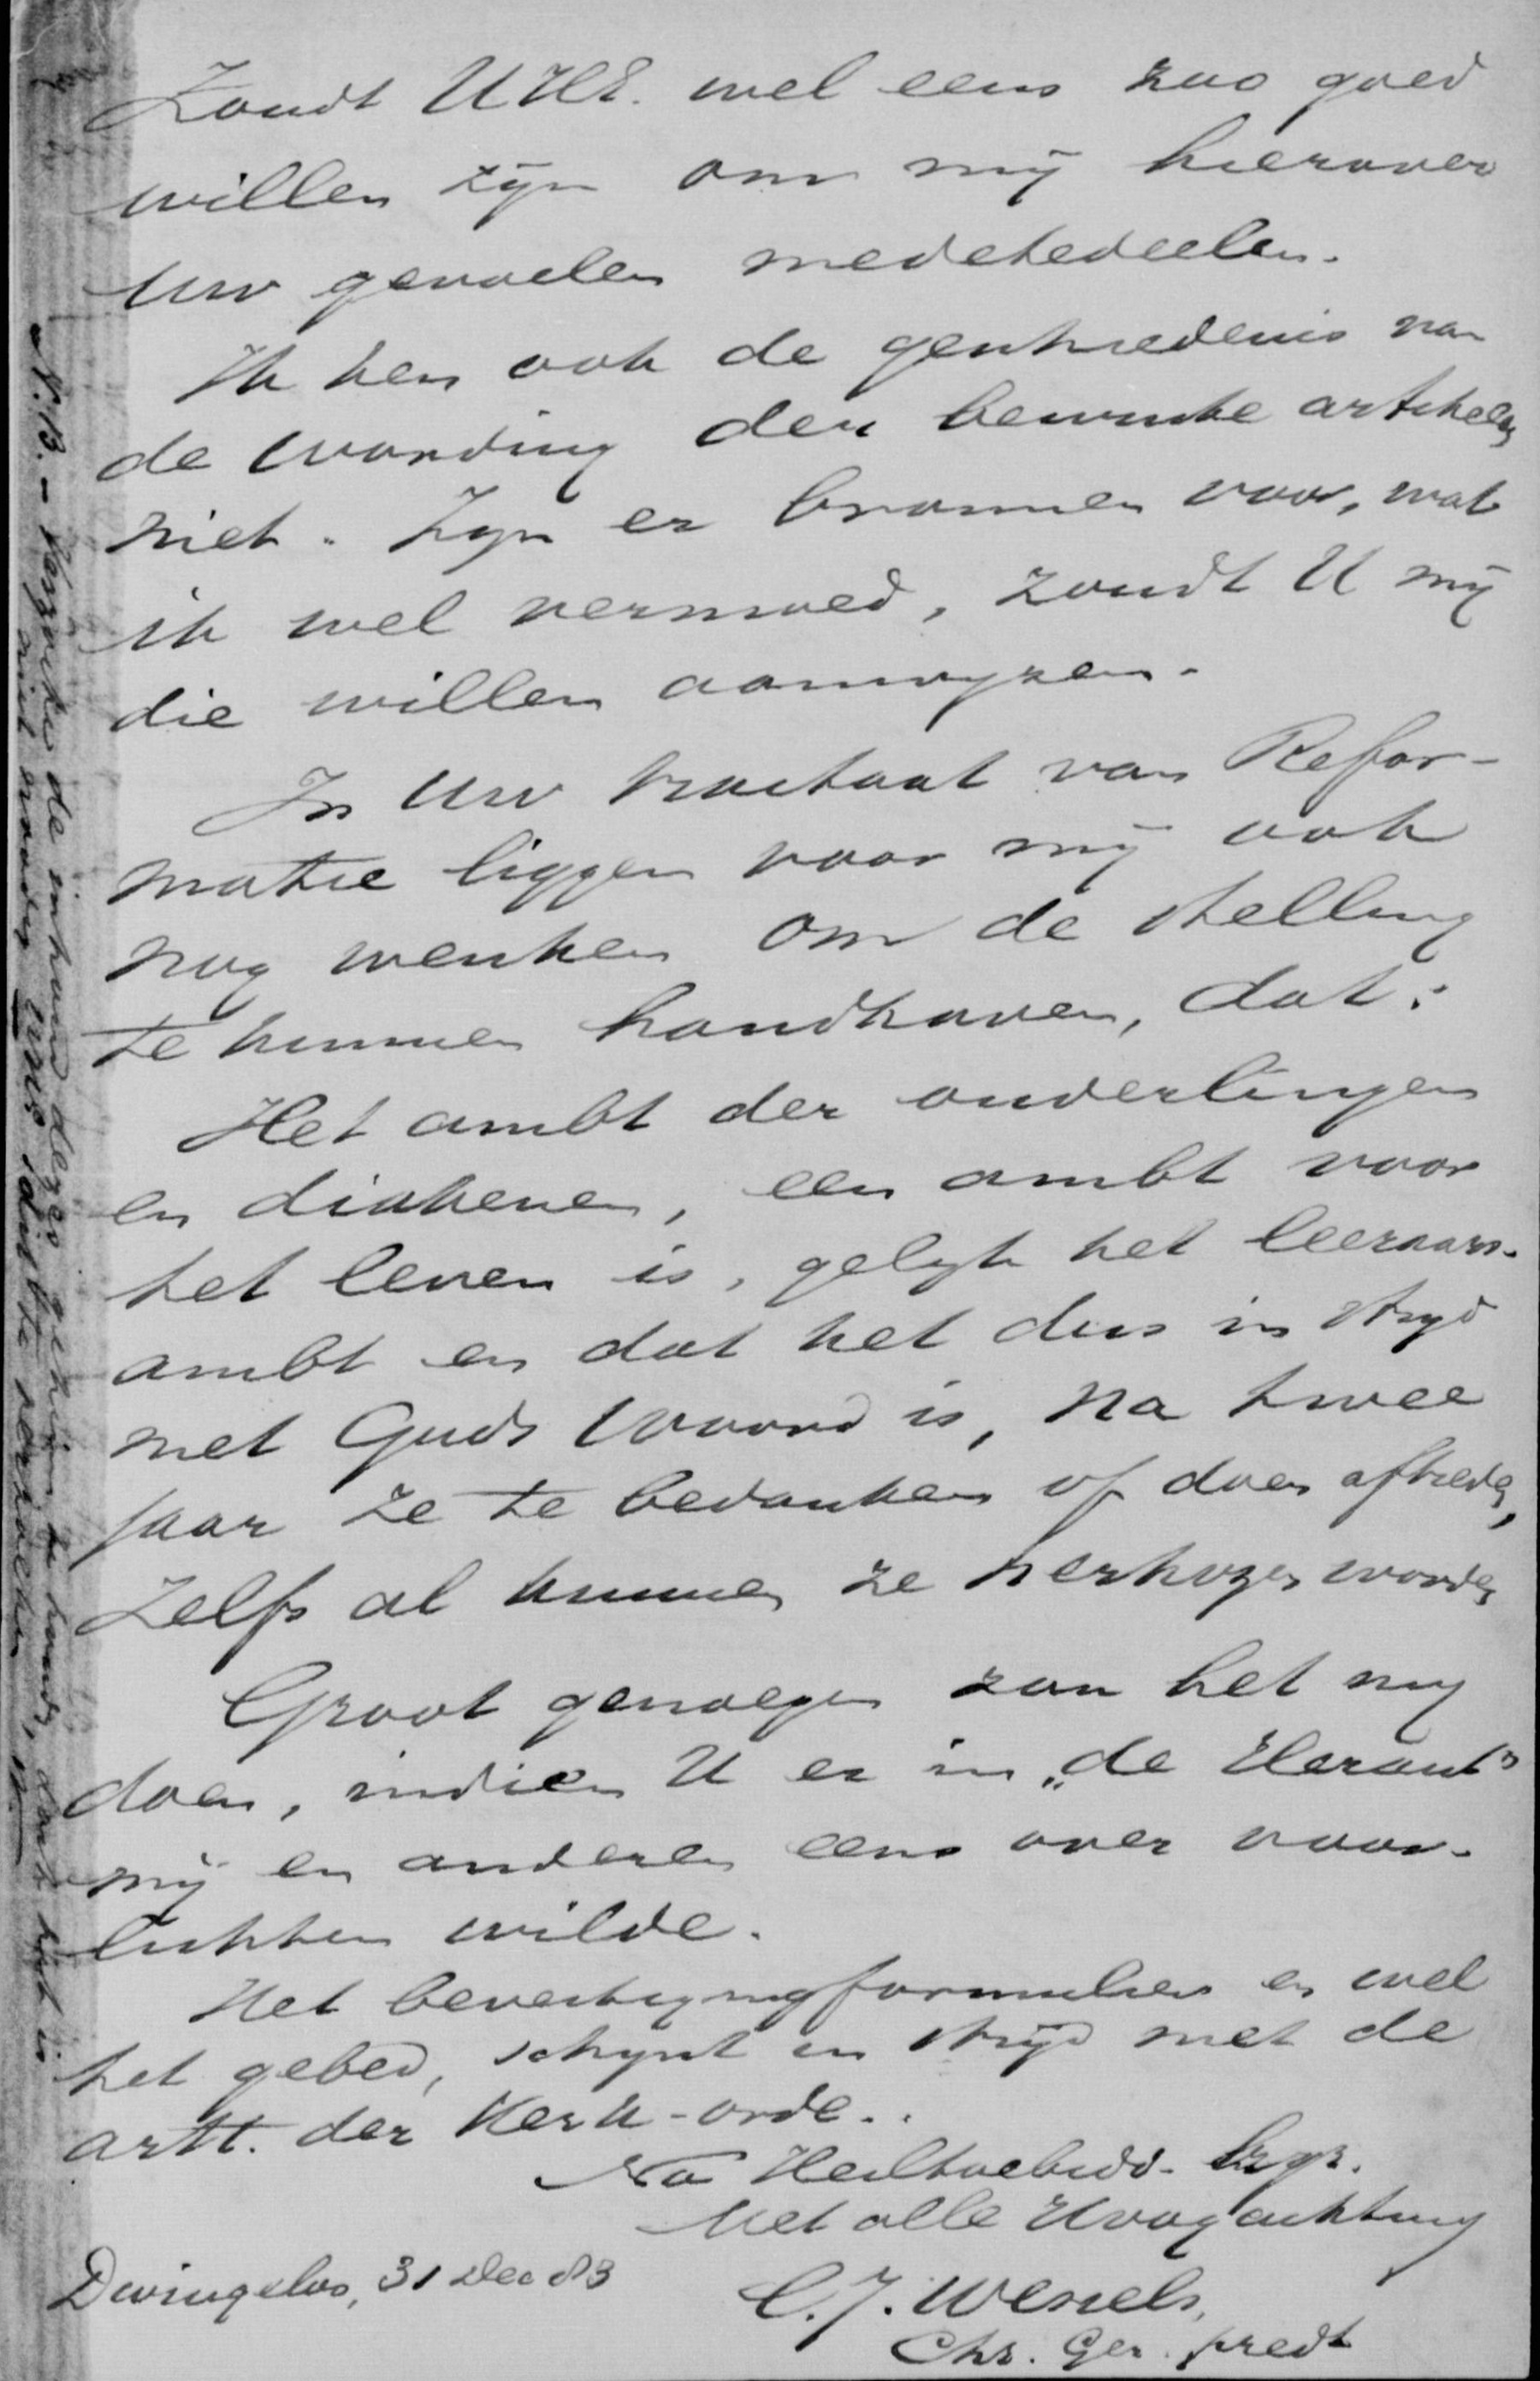 Zoudt UWE. wel eens zoo goed
willen zijn om mij hierover
uw gevoelen medetedeelen.
Ik ken ook de geschiedenis van
de wording der bewuste artikelen
niet. Zijn er bronnen voor, wat
ik wel vermoed, zoudt U mij
die willen aanwijzen.
In Uw tractaat van Refor-
matie liggen voor mij ook
nog wenken om de stelling
te kunnen handhaven, dat:
Het ambt der ouderlingen
en diakenen, een ambt voor
het leven is, gelijk het leeraars-
ambt en dat het dus in strijd
met Gods Woord is, na twee
jaar ze te bedanken of doen aftreden,
zelfs al kunnen ze herkozen worden
Groot genoegen zou het mij
doen, indien U er in „de Heraut”
mij en anderen eens over voor-
lichten wilde.
Het bevestigingformulier en wel
het gebed, schijnt in strijd met de
artt. der Kerk-orde..
Na Heiltoebidd.
Met alle Hoogachting
C. J. Wessels,
Chr. Ger. predt
Dwingeloo, 31 Dec 83
N.B. - Verzoeke de inhoud dezes geheim te houden, want het is
niet noodig